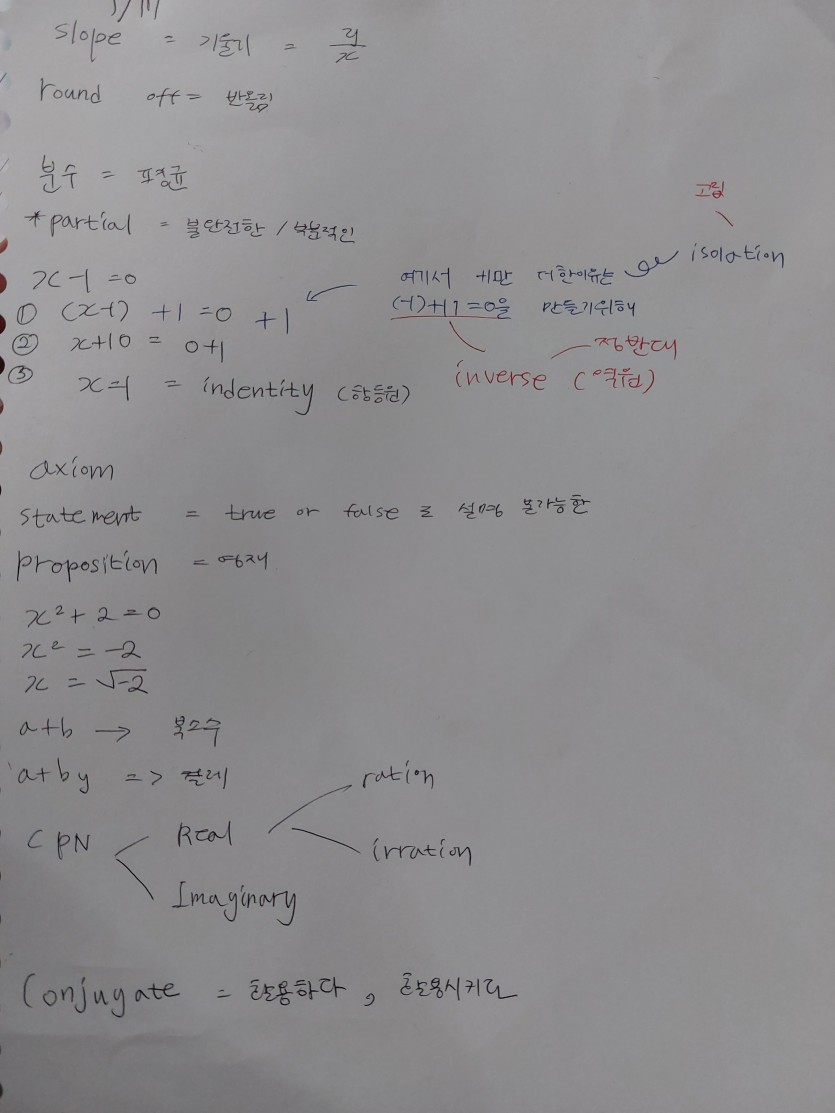 slope = 기울기 = y/x
round off = 반올림
분수 = 평균
*partial = 불완전한 / 부분적인
고립
isolation
x-1=0
여기서 더한이유는
① (x-1) +1=0 +1
(-1)+1=0을 만들기위해
② x+10 = 0+1
정반대
inverse (역원)
③ x=1 = indentity (항등원)
axiom
statement = true or false로 설명 불가능한
proposition =
x²+2=0
x² = -2
x = √-2
a+b → 복소수
a+by => 켤레
ration
CPN Real
irration
Imaginary
Conjugate = 활용하다, 활용시키다